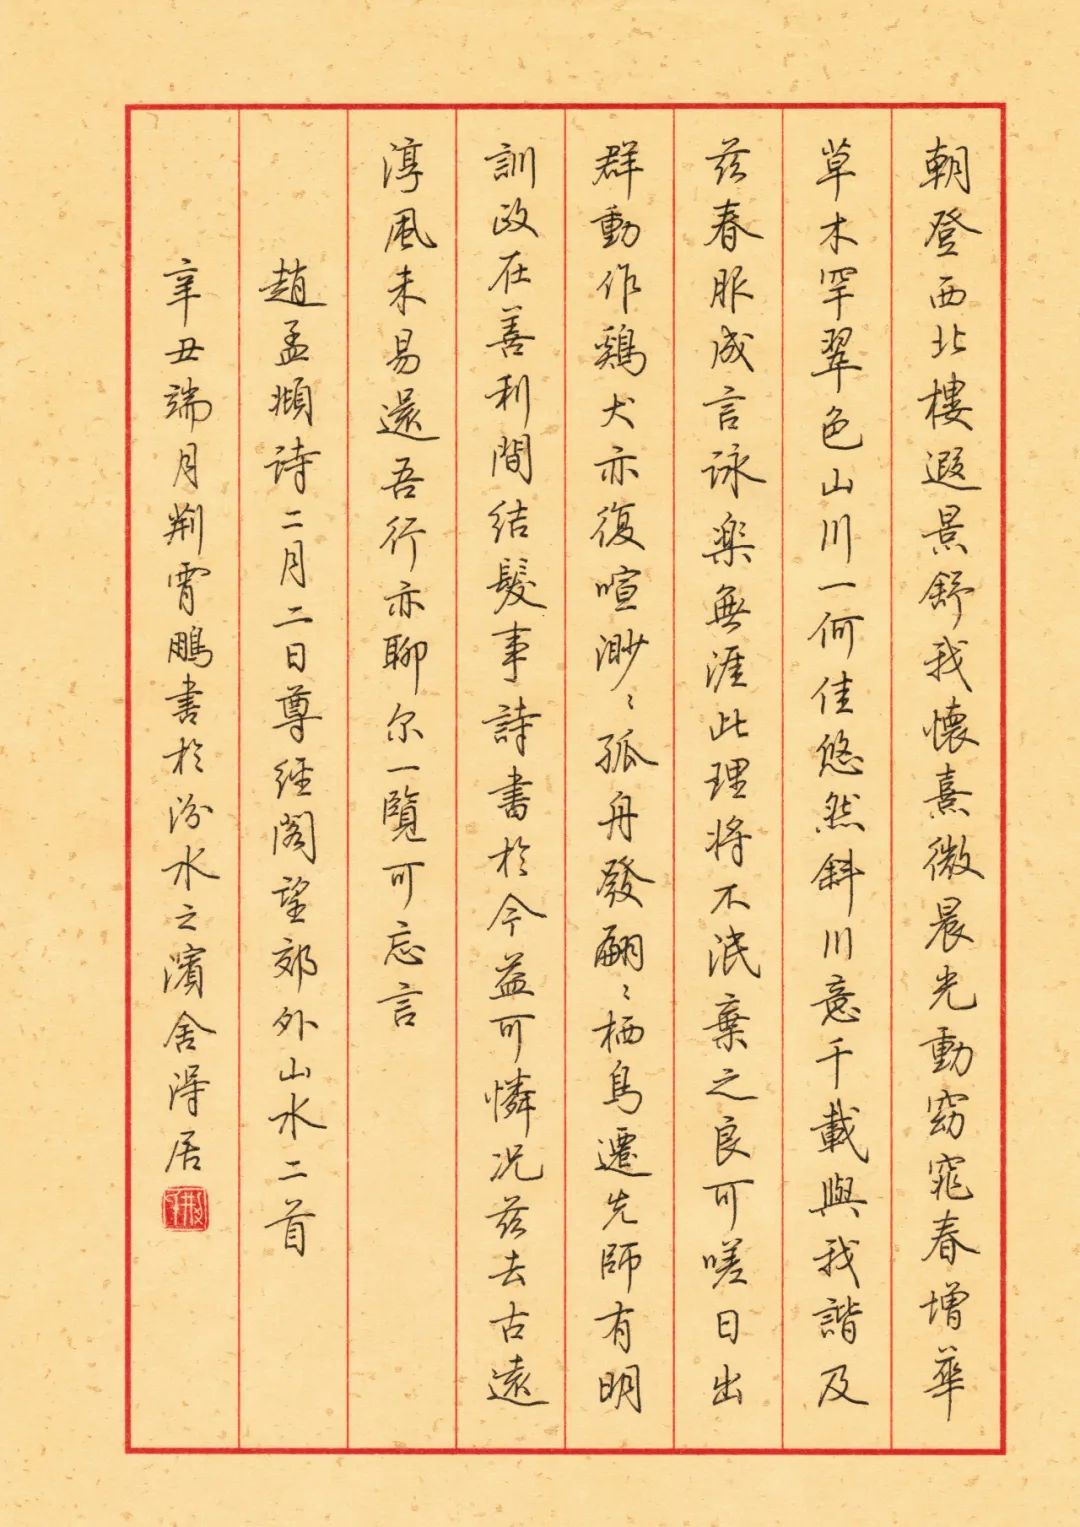 朝登西北樓遐景舒我懷熹微晨光動窈窕春增華
草木罕翠色山川一何佳悠然斜川意千載與我諧及
茲春服成言詠楽無涯此理将不泯棄之良可嗟日出
群動作鷄犬亦復喧渺〻孤舟發翩〻栖鳥遷先師有明
訓政在善利間結髮事詩書於今益可憐况茲去古遠
淳風未易還吾行亦聊尔一覽可忘言
趙孟頫诗二月二日尊經閣望郊外山水二首
辛丑端月荆霄鵬書於汾水之濱舍淂居